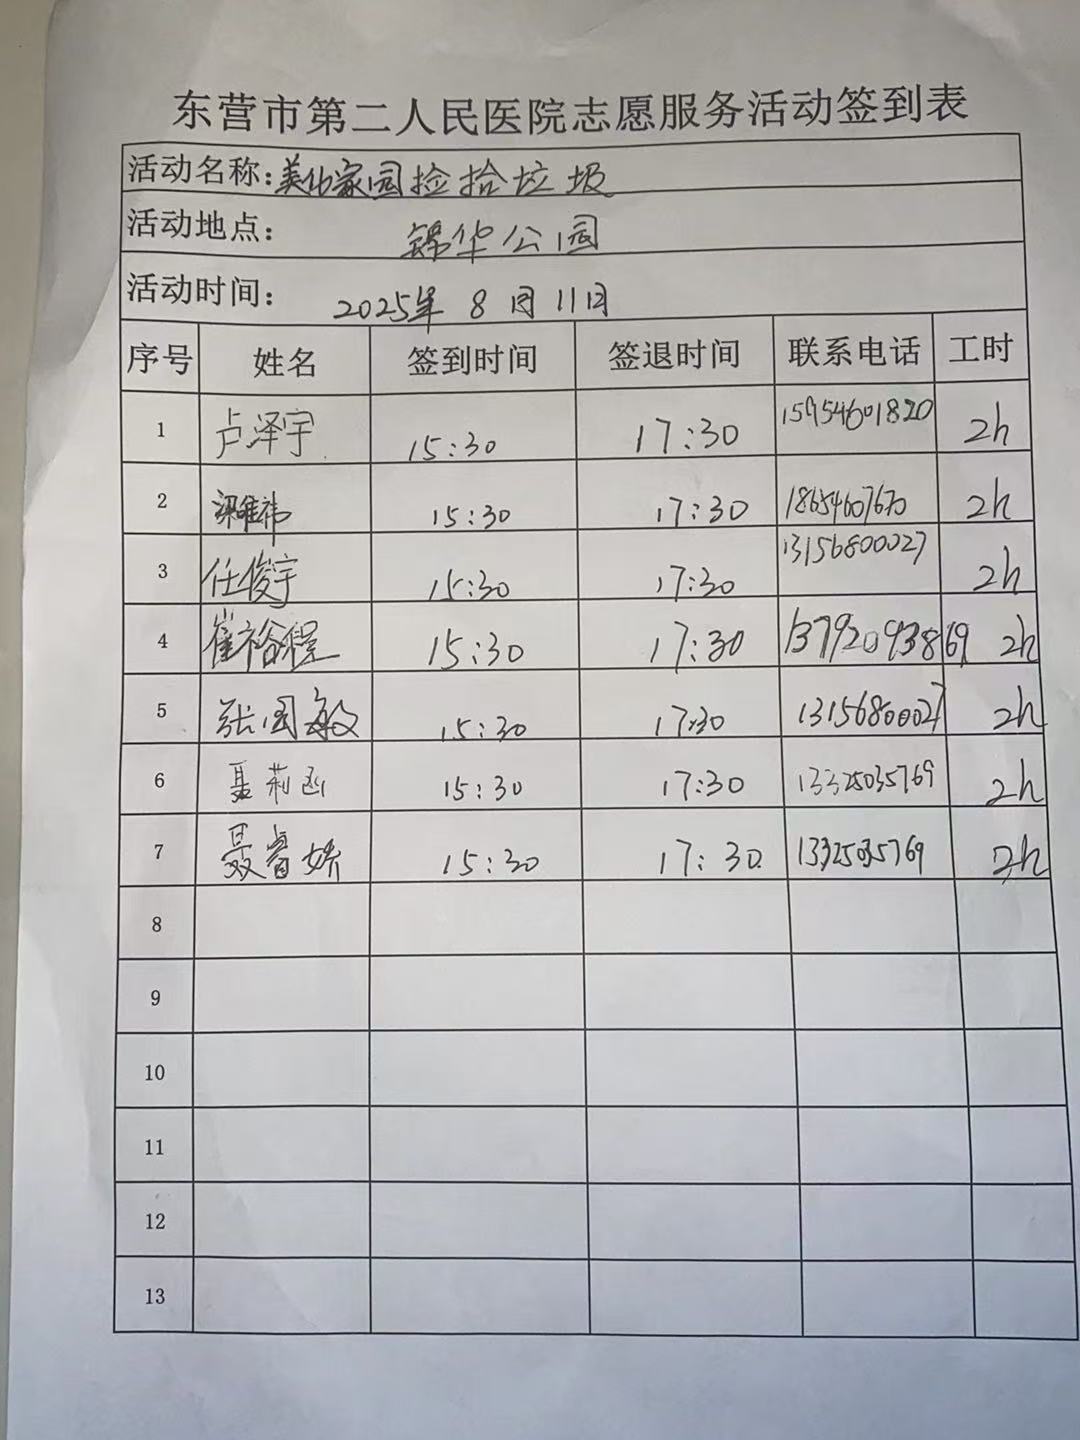 东营市第二人民医院志愿服务活动签到表
活动名称:美化家园捡拾垃圾
活动地点: 锦华公园
活动时间: 2025年 8月11日
序号 姓名 签到时间 签退时间 联系电话 工时
1 卢泽宇 15:30 17:30 15954601820 2h
2 梁唯祎 15:30 17:30 18654607670 2h
3 任俊宇 15:30 17:30 13156800027 2h
4 崔裕程 15:30 17:30 13792093869 2h
5 张国敏 15:30 17:30 13156800027 2h
6 聂莉函 15:30 17:30 13325035769 2h
7 聂睿娇 15:30 17:30 13325035769 2h
8
9
10
11
12
13